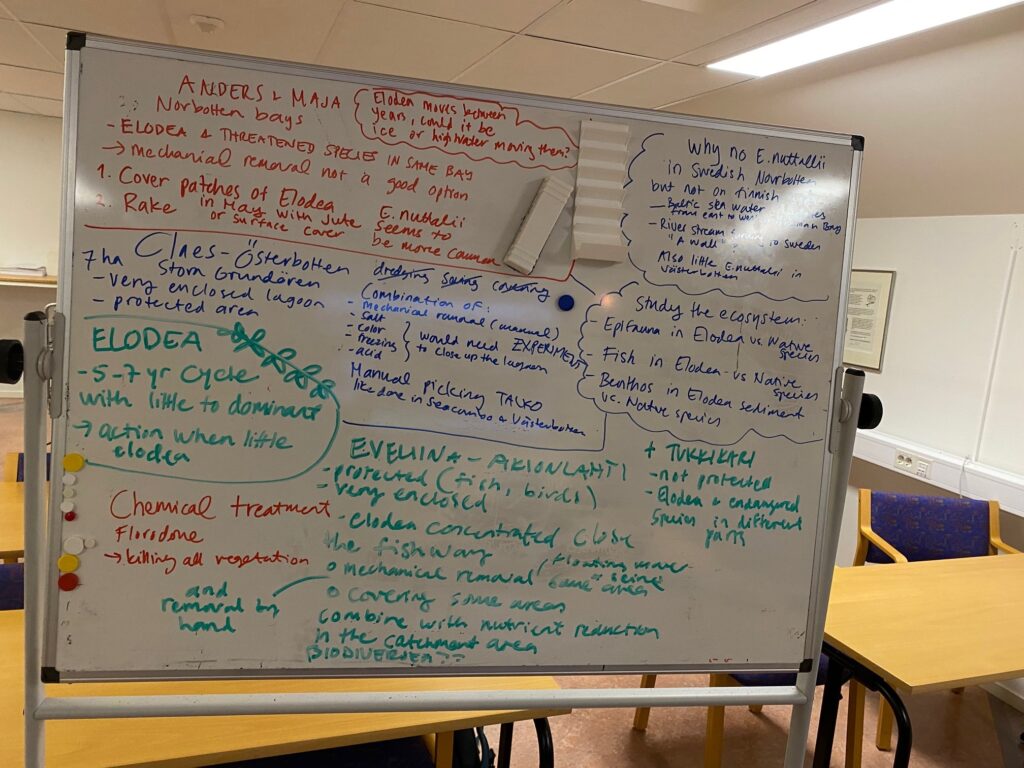 ANDERS & MAJA
Norbotten bays
- ELODEA & THREATENED SPECIES IN SAME BAY
→ mechanial removal not a good option
1. Cover patches of Elodea
in May with jute
or surface cover
2. Rake
E. nuttalii
seems to
be more common
Elodea moves between
years, could it be
ice or highwater moving them?
Why no E. nuttallii
in Swedish Norrbotten
but not on finnish
- Baltic sea water
from east to
- River stream
to Sweden
"A wall"
Also little E. nuttalii in
Västerbotten
Claes - Österbotten
7 ha Storn Grundören
- very enclosed lagoon
- protected area
dredging covering
Combination of:
- mechanical (manual)
- salt
- color
- freezing
- acid
would need EXPERIMENT
to close up the lagoon
Manual picking TALKO
like done in & Västerbotten
Study the ecosystem:
- Epifauna in Elodea vs Native
species
- Fish in Elodea vs Native
species
- Benthos in Elodea sediment
vs. Native species
ELODEA
- 5-7 yr cycle
with little to dominant
→ action when little
elodea
Chemical treatment
Floridone
→ killing all vegetation
EVELIINA - AKIONLAHTI
- protected (fish, birds)
- very enclosed
- elodea concentrated close
the fishway
o mechanical removal
o covering some areas
and
removal by
hand
combine with nutrient reduction
in the catchment area
+ TUKKIKARI
- not protected
- Elodea & endangered
species in different
parts